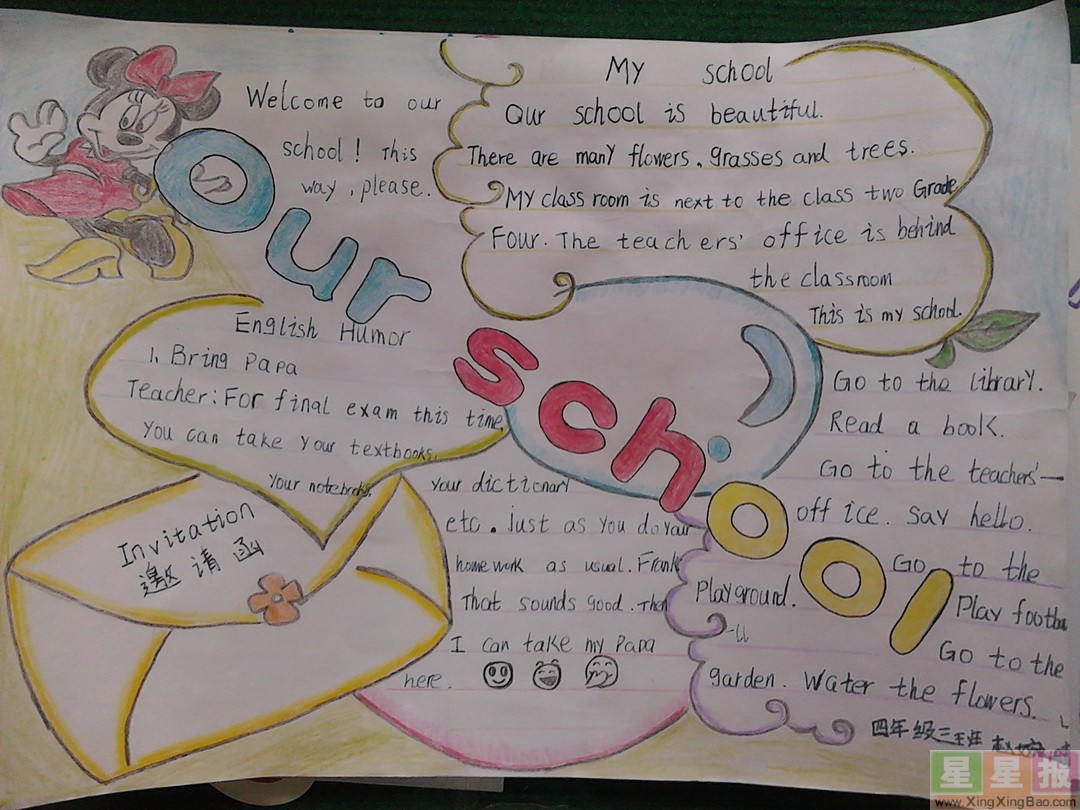 Our school
Welcome to our
school! This
way, please.
My school
Our school is beautiful.
There are many flowers. grasses and trees.
My class room is next to the class two Grade
Four. The teachers' office is behind
the classroom
This is my school.
English Humor
1. Bring Papa
Teacher: For final exam this time,
you can take your textbooks,
your notebooks,
your dictionary
etc. just as you do your
homework as usual. Frank
That sounds good. Then
I can take my Papa
here.
Invitation
邀请函
Go to the library.
Read a book.
Go to the teachers'—
office. Say hello.
Go to the
Playground.
Play footba
-ll
Go to the
garden. Water the flowers.
四年级三班
星星报
www.XingXingBao.com